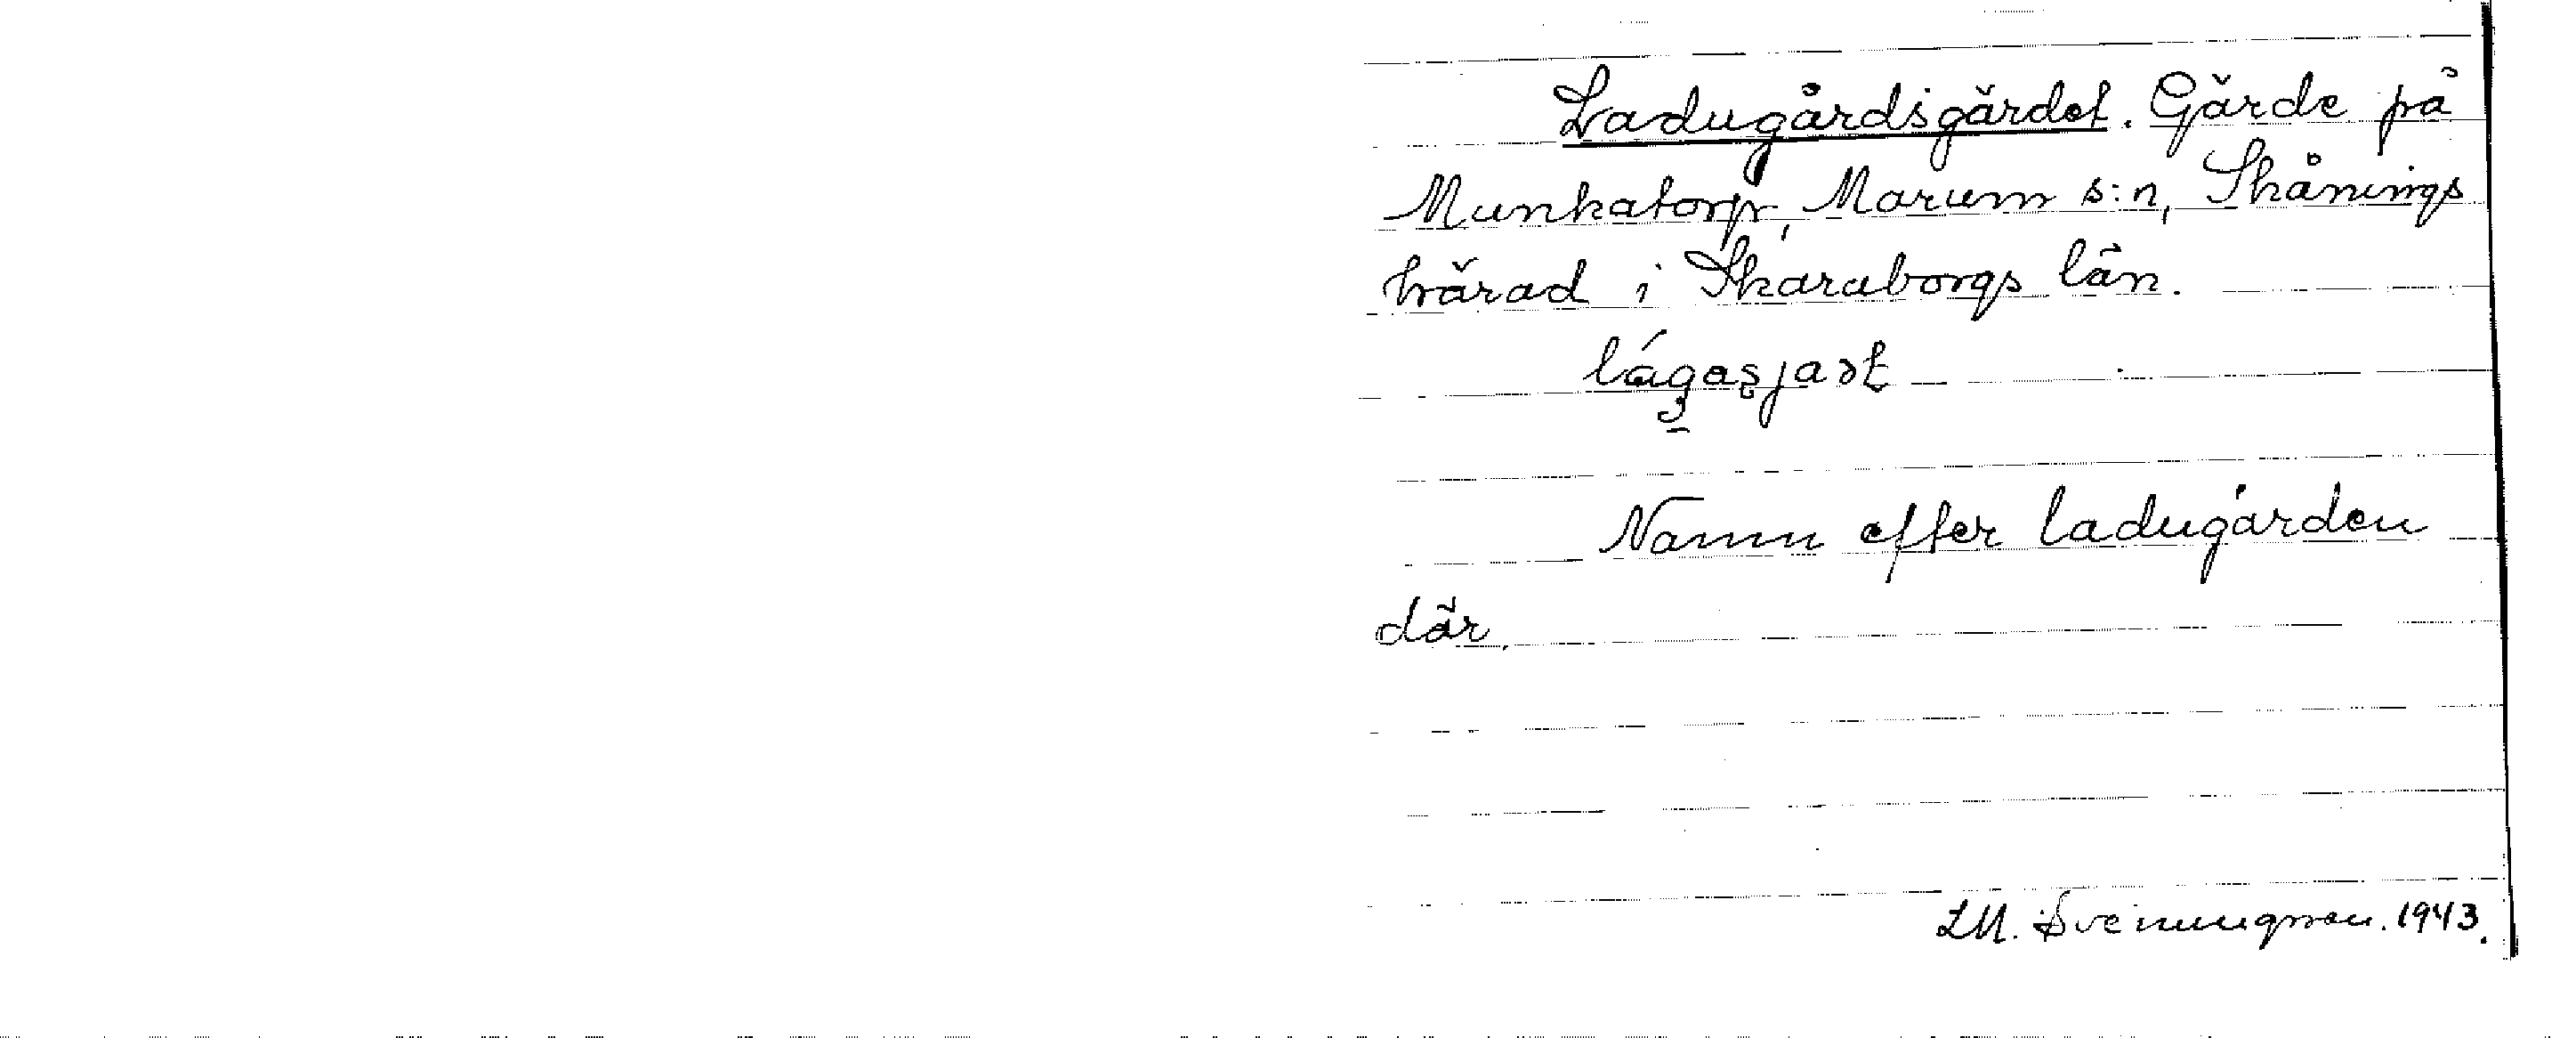 Ladugårdsgärdet. Gärde på
Munkatorp, Marum s:n, Skånings
härad i Skaraborgs län.
Namn efter ladugården
där.
LM. Svenungsson. 1943.